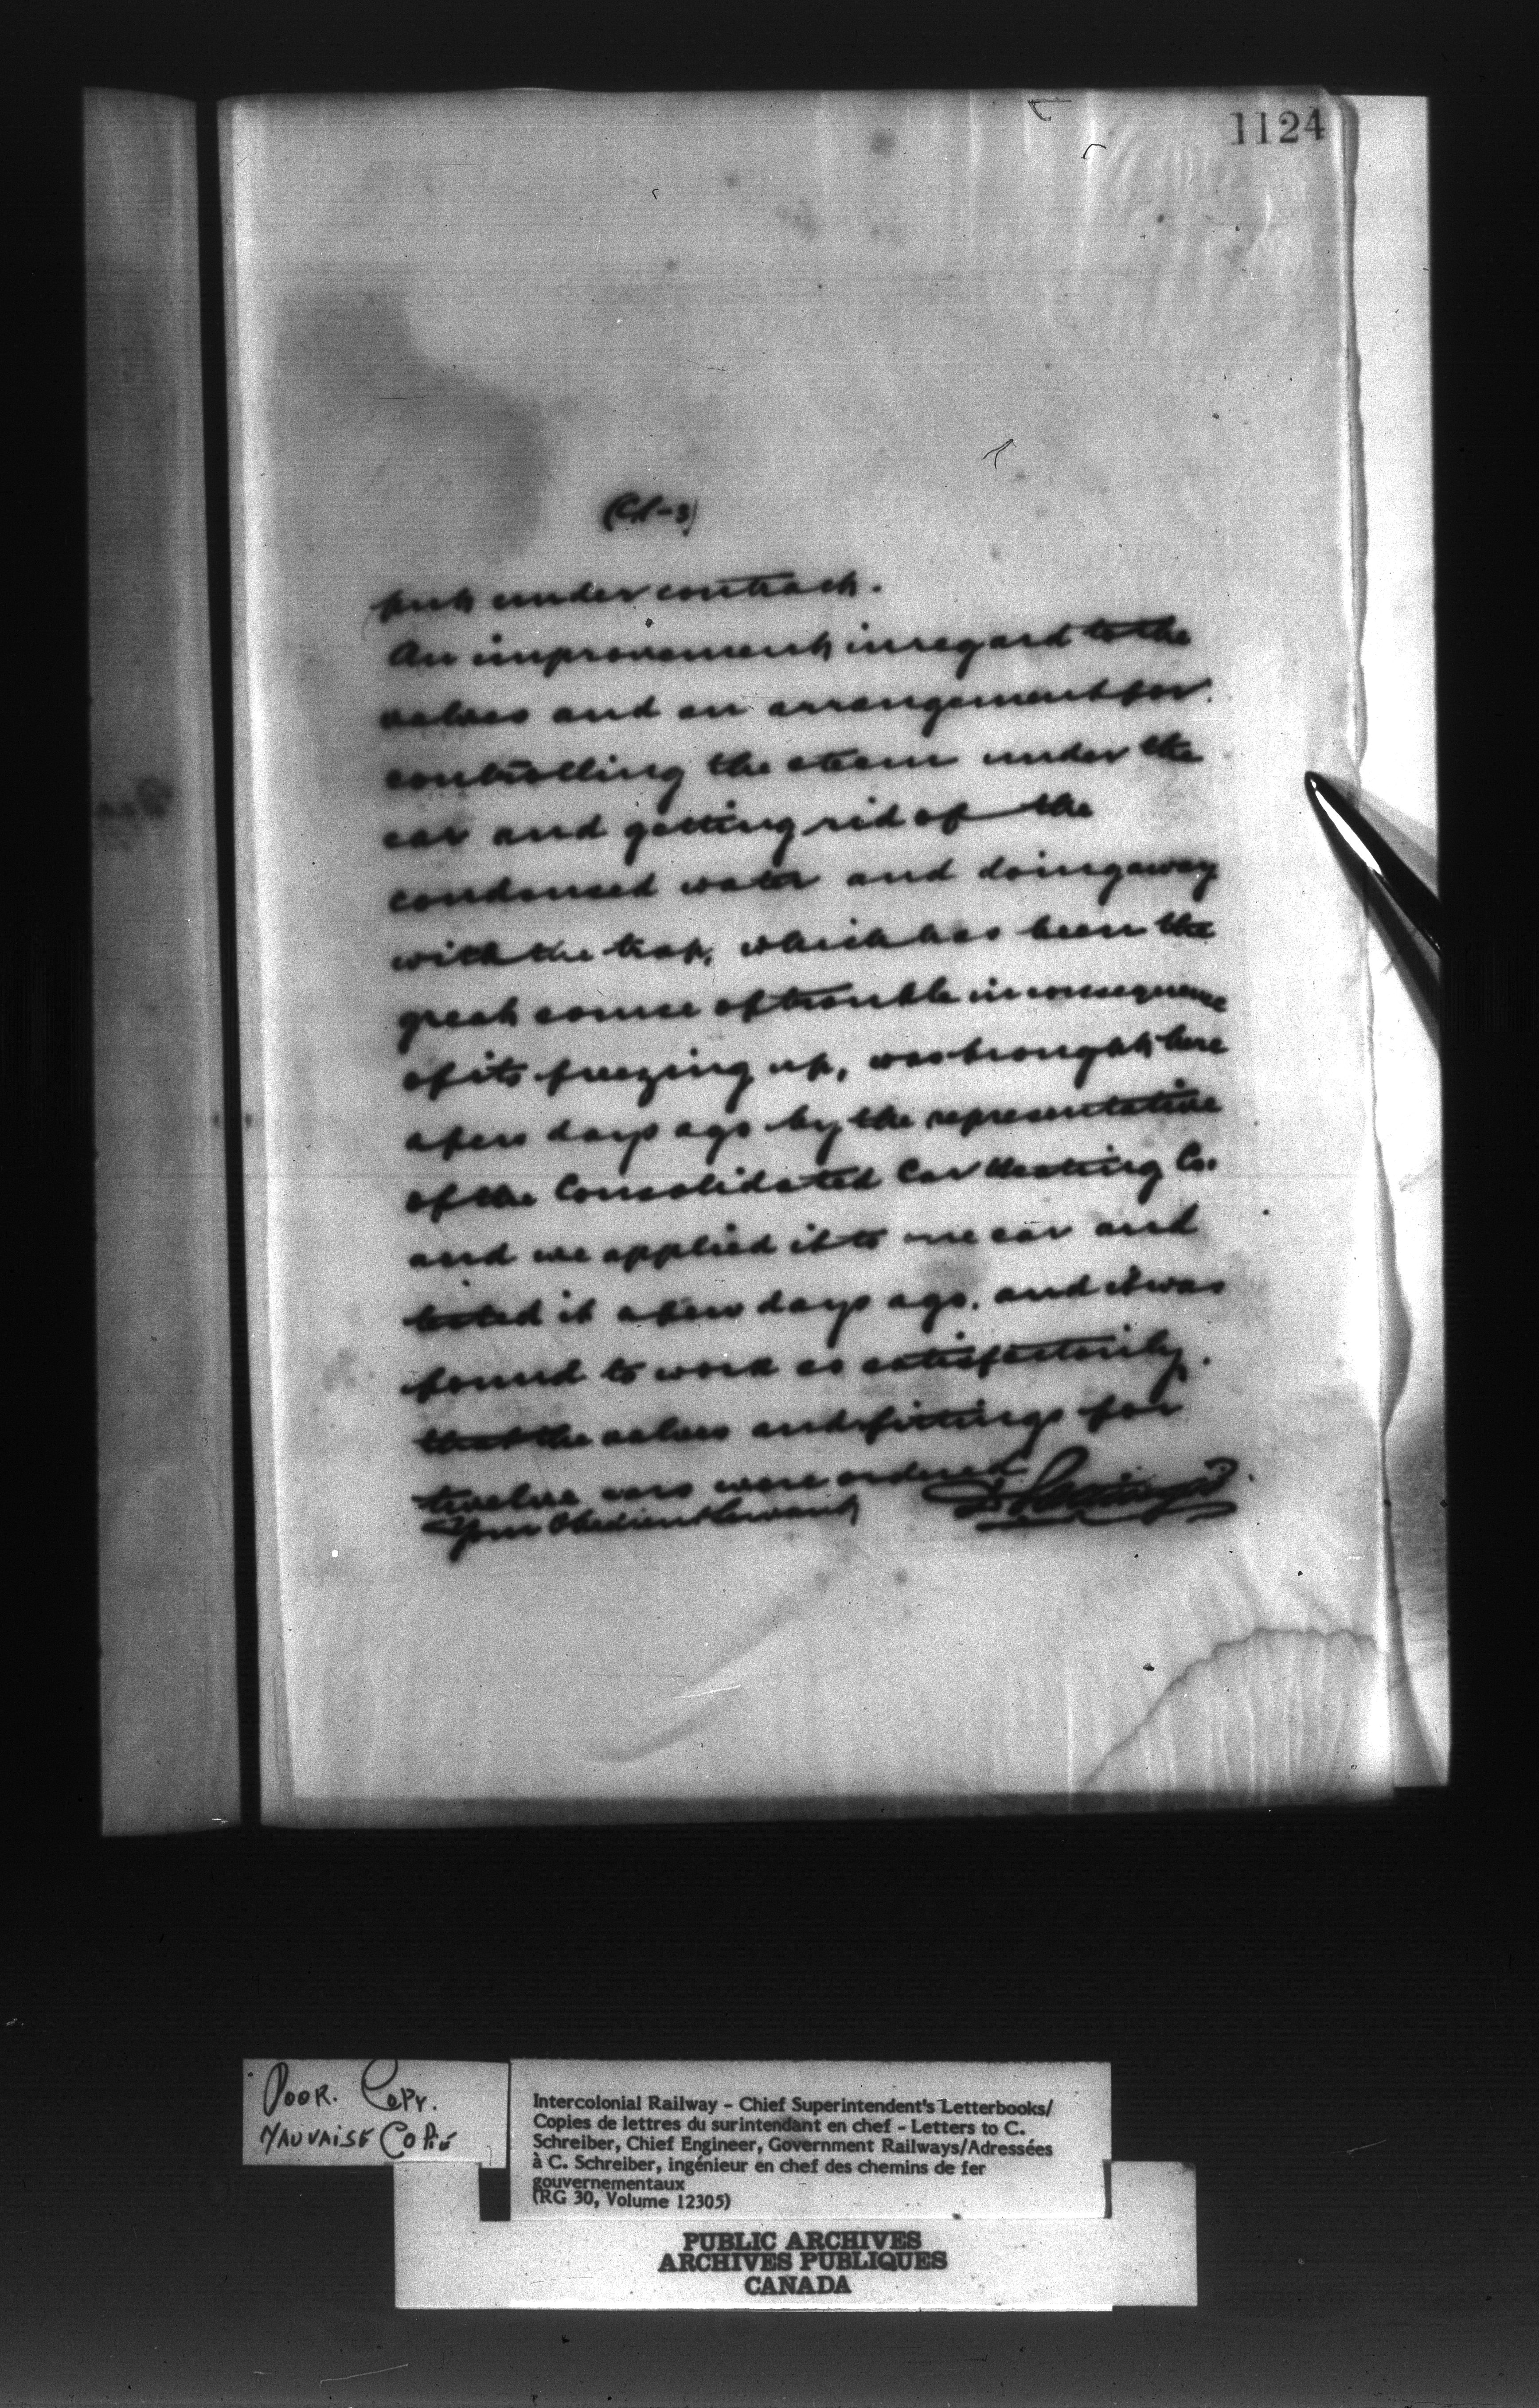 1124
put under contract.
An improvement in regard to the
valves and an arrangement for
controlling the steam under the
car and getting rid of the
condensed water and doing away
with the trap, which has been the
great source of trouble in consequence
of its freezing up, was brought here
a few days ago by the representative
of the Consolidated Car Heating Co.
and we applied it to one car and
tested it a few days ago, and it was
found to work so satisfactorily.
that the valves and fittings for
twelve cars were ordered
Your Obedient Servant
D Pottinger
POOR. COPY.
MAUVAISE COPIE
Intercolonial Railway - Chief Superintendent's Letterbooks/
Copies de lettres du surintendant en chef - Letters to C.
Schreiber, Chief Engineer, Government Railways/Adressées
à C. Schreiber, ingénieur en chef des chemins de fer
gouvernementaux
(RG 30, Volume 12305)
PUBLIC ARCHIVES
ARCHIVES PUBLIQUES
CANADA